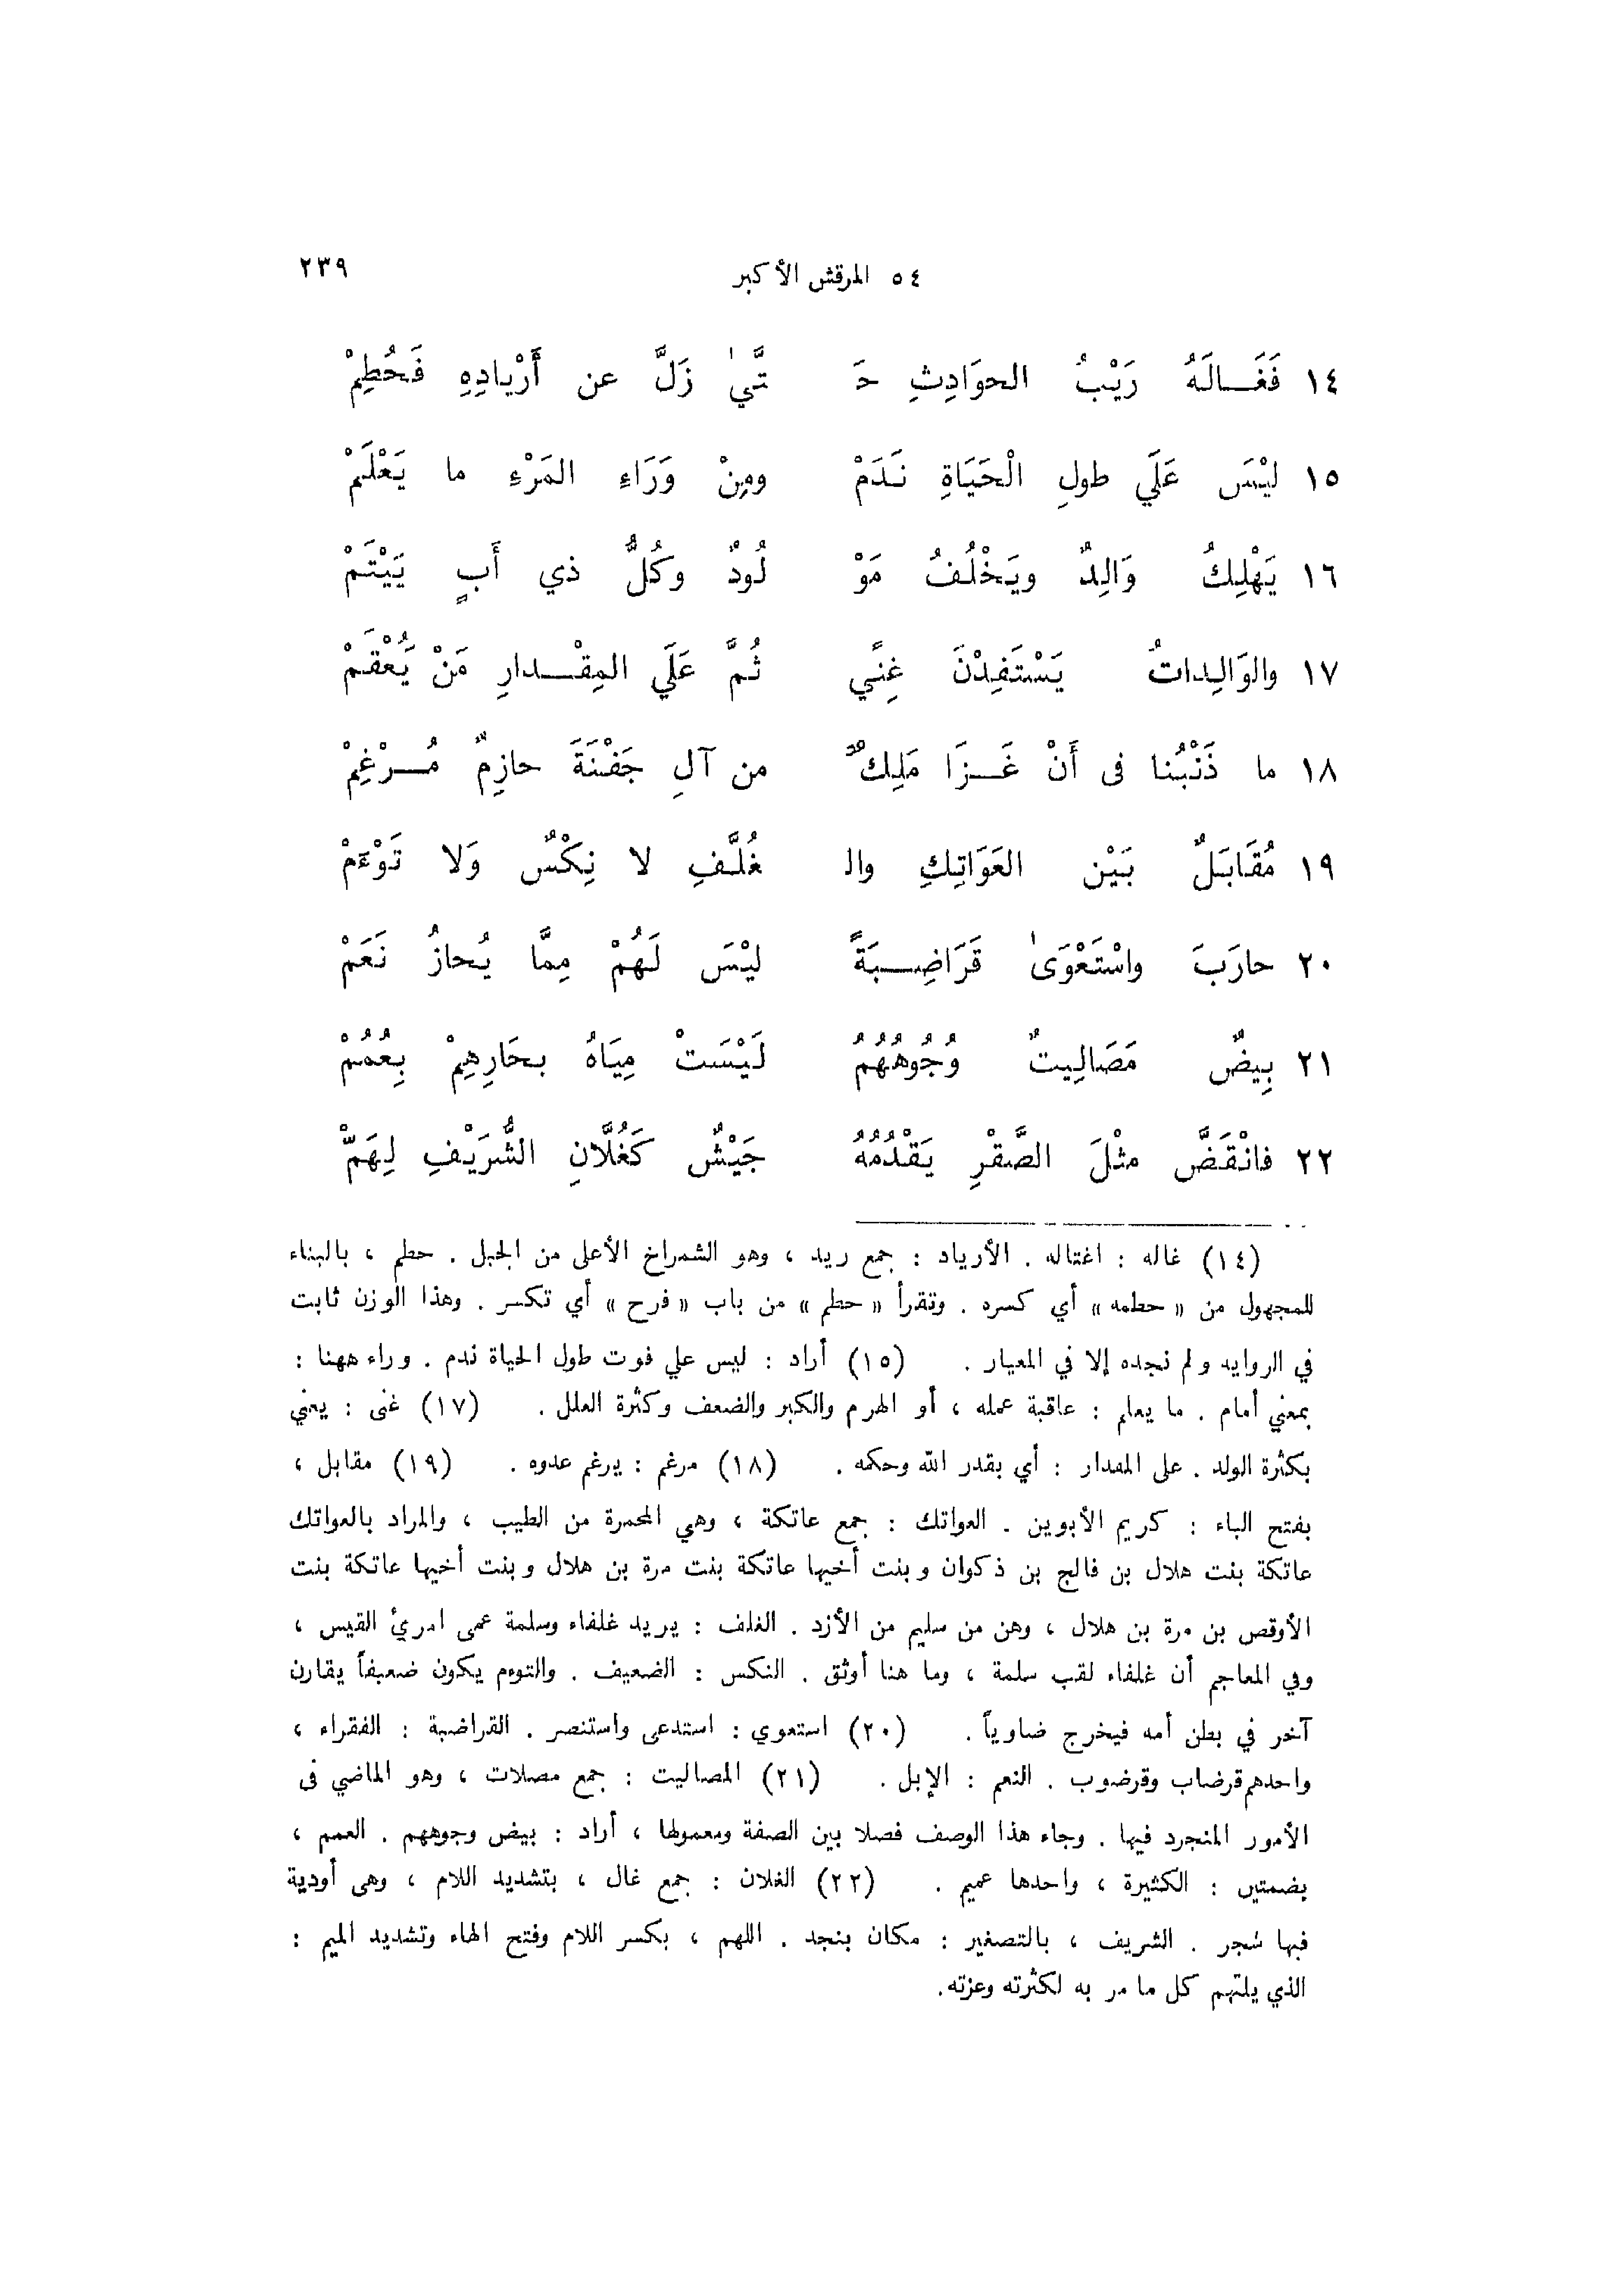 ٥٤ المرقش الأكبر ٢٣٩
١٤ فَغَـالَهُ رَيْبُ الحوَادِثِ حَـ تَّىٰ زَلَّ عن أَرْيادِهِ فَحُطِمْ
١٥ ليْسَ عَلَي طولِ الْحَيَاةِ نَدَمْ ومِنْ وَرَاءِ المَرْءِ ما يَعْلَمْ
١٦ يَهْلِكُ وَالِدٌ ويَخْلُفُ مَوْ لُودٌ وكُلُّ ذي أَبٍ يَيْتَمْ
١٧ والوَالِداتُ يَسْتَفِدْنَ غِنًي ثُمَّ عَلَي المِقْـدارِ مَنْ يُعْقَمْ
١٨ ما ذَنْبُنا فى أَنْ غَـزَا مَلِكٌ من آلِ جَفْنَةَ حازِمٌ مُـرْغِمْ
١٩ مُقَابَلٌ بَيْن العَوَاتِكِ والـ غُلَّفِ لا نِكْسٌ وَلا تَوْءَمْ
٢٠ حارَبَ واسْتَعْوَىٰ قَرَاضِـبَةً ليْسَ لَهُمْ مِمَّا يُحازُ نَعَمْ
٢١ بِيضٌ مَصَالِيتٌ وُجُوهُهُمُ لَيْسَتْ مِيَاهُ بحَارِهِمْ بِعُمُمْ
٢٢ فانْقَضَّ مثْلَ الصَّقرِ يَقْدُمُهُ جَيْشٌ كَغُلَّانِ الشُّرَيْفِ لِهَمّْ
(١٤) غاله : اغتاله . الأرياد : جمع ريد ، وهو الشمراخ الأعلى من الجبل . حطم ، بالبناء
للمجهول من « حطمه » أي كسره . وتقرأ « حطم » من باب « فرح » أي تكسر . وهذا الوزن ثابت
في الروايه ولم نجده إلا في المعيار . (١٥) أراد : ليس علي فوت طول الحياة ندم . وراء ههنا :
بمعني أمام . ما يعلم : عاقبة عمله ، أو الهرم والكبر والضعف وكثرة العلل . (١٧) غنى : يعني
بكثرة الولد . على المقدار : أي بقدر الله وحكمه . (١٨) مرغم : يرغم عدوه . (١٩) مقابل ،
بفتح الباء : كريم الأبوين . العواتك : جمع عاتكة ، وهي المحمرة من الطيب ، والمراد بالعواتك
عاتكة بنت هلال بن فالج بن ذكوان وبنت أخيها عاتكة بنت مرة بن هلال وبنت أخيها عاتكة بنت
الأوقص بن مرة بن هلال ، وهن من سليم من الأزد . الغلف : يريد غلفاء وسلمة عمى امرئ القيس ،
وفي المعاجم أن غلفاء لقب سلمة ، وما هنا أوثق . النكس : الضعيف . والتوءم يكون ضعيفاً يقارن
آخر في بطن أمه فيخرج ضاوياً . (٢٠) استعوي : استدعى واستنصر . القراضبة : الفقراء ،
واحدهم قرضاب وقرضوب . النعم : الإبل . (٢١) المصاليت : جمع مصلات ، وهو الماضي فى
الأمور المنجرد فيها . وجاء هذا الوصف فصلا بين الصفة ومعمولها ، أراد : بيض وجوههم . العمم ،
بضمتين : الكثيرة ، واحدها عميم . (٢٢) الغلان : جمع غال ، بتشديد اللام ، وهى أودية
فيها شجر . الشريف ، بالتصغير : مكان بنجد . اللهم ، بكسر اللام وفتح الهاء وتشديد الميم :
الذي يلتهم كل ما مر به لكثرته وعزته .